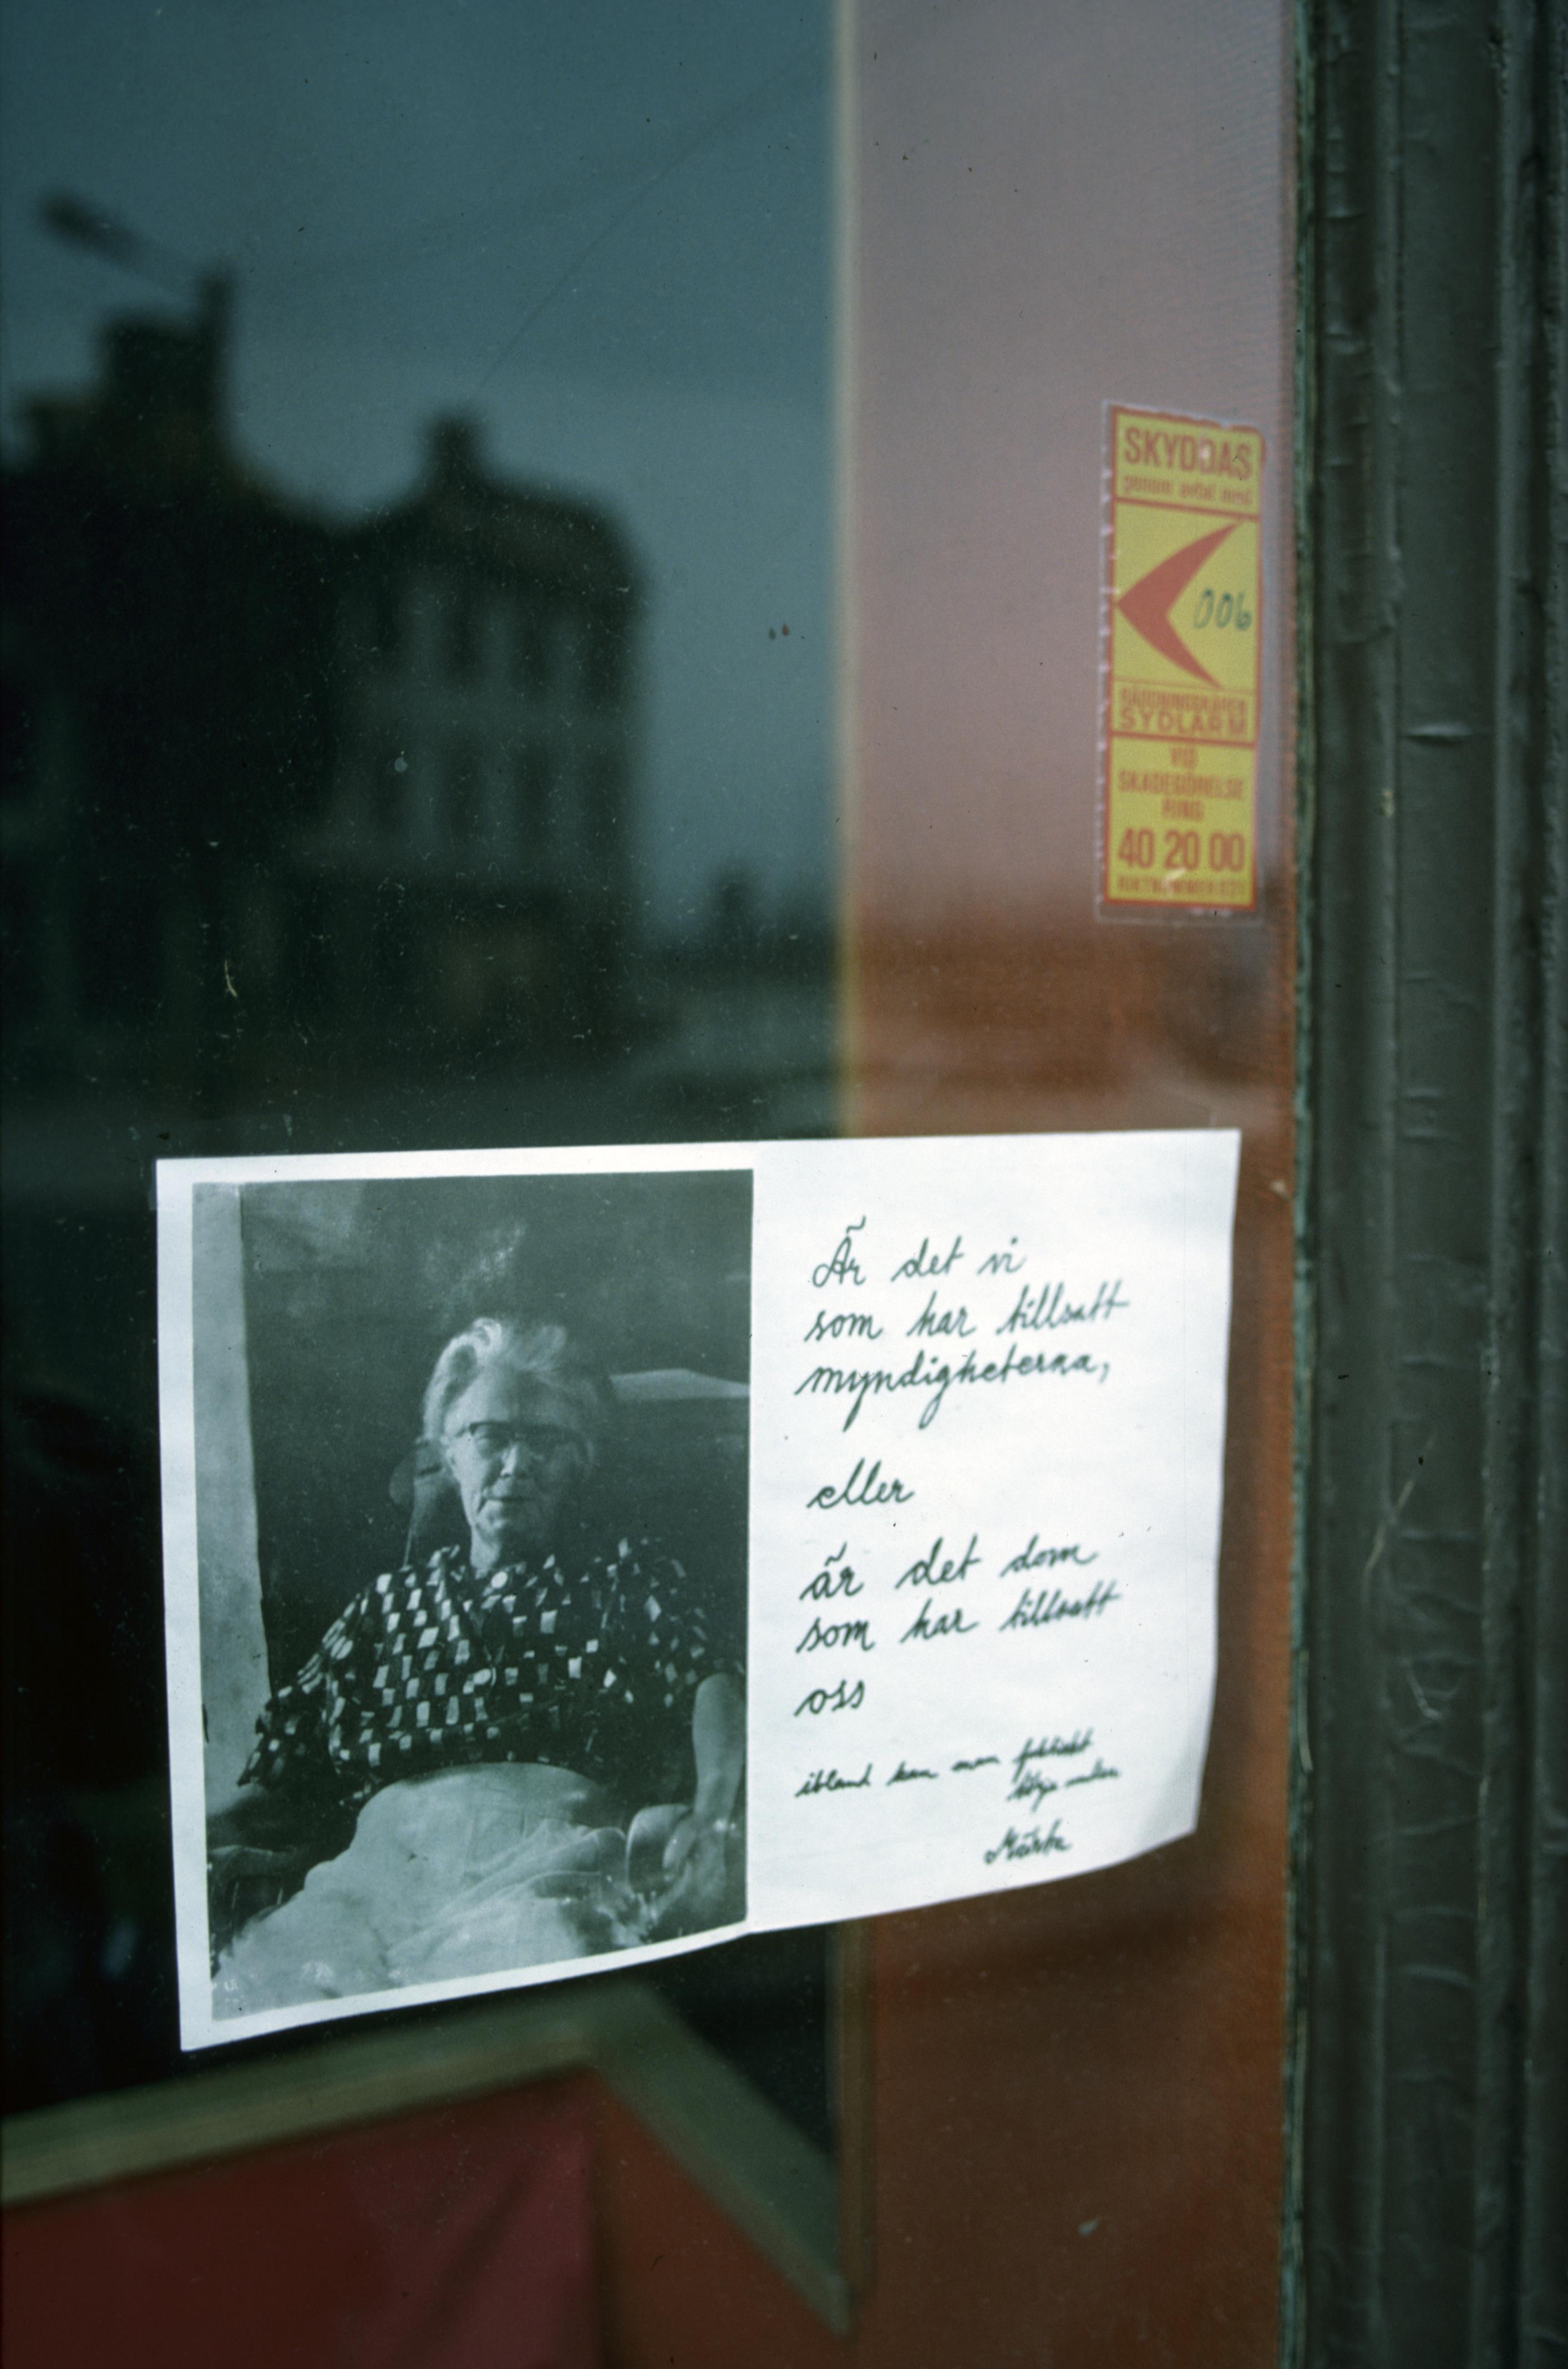 SKYDDAS
genom avtal med
006
SYDLARM
VID
SKADEGÖRELSE
RING
40 20 00
RIKTNUMMER
Är det vi
som har tillsatt
myndigheterna,
eller
är det dom
som har tillsatt
oss
ibland kan man faktiskt
börja undra
Märta